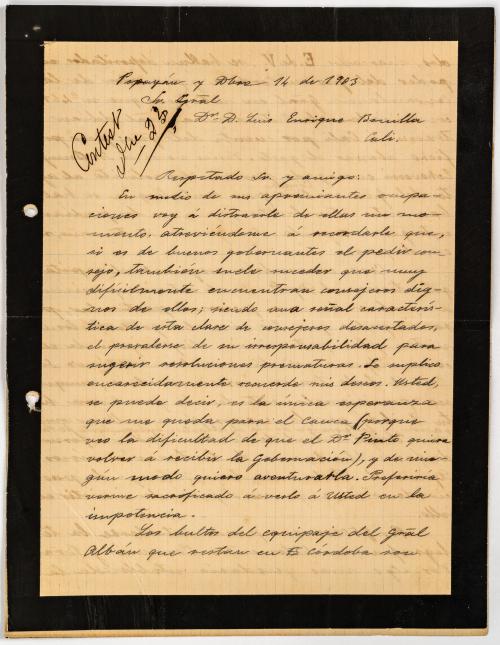 Popayán y Dbre 14 de 1903
Sr. Gral
Dr. D. Luis Enrique Bonilla
Cali.
Contest
Dbre 23
Respetado Sr. y amigo:
En medio de sus apremiantes ocupa
ciones voy á distraerle de ellas un mo-
mento, atreviéndome á recordarle que,
si es de buenos gobernantes el pedir con-
sejo, también suele suceder que muy
difícilmente encuentran consejeros dig-
nos de ellos; siendo una señal caracterís-
tica de esta clase de consejeros desacertados,
el prevalerse de su irresponsabilidad para
sugerir resoluciones prematuras. Le suplico
encarecidamente recuerde mis deseos. Usted,
se puede decir, es la única esperanza
que me queda para el Cauca (porque
veo la dificultad de que el Dr. Pinto quiera
volver á recibir la Gobernación), y de nin-
gún modo quiero aventurarla. Preferiría
verme sacrificado á verlo á Usted en la
impotencia.
Los bultos del equipaje del Gral
Albán que restan en Córdoba son